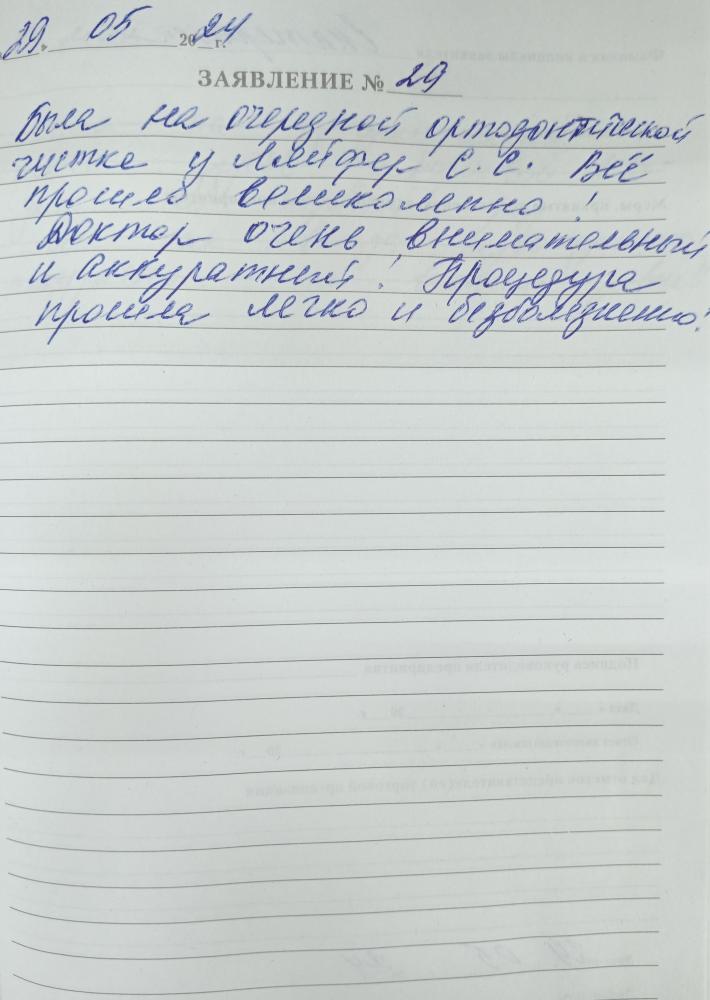 29. 05 2024 г.
ЗАЯВЛЕНИЕ № 29
Была на очередной ортодонтической
чистке у Лейфер С.С. Всё
прошло великолепно!
Доктор очень внимательный
и аккуратный! Процедура
прошла легко и безболезненно!